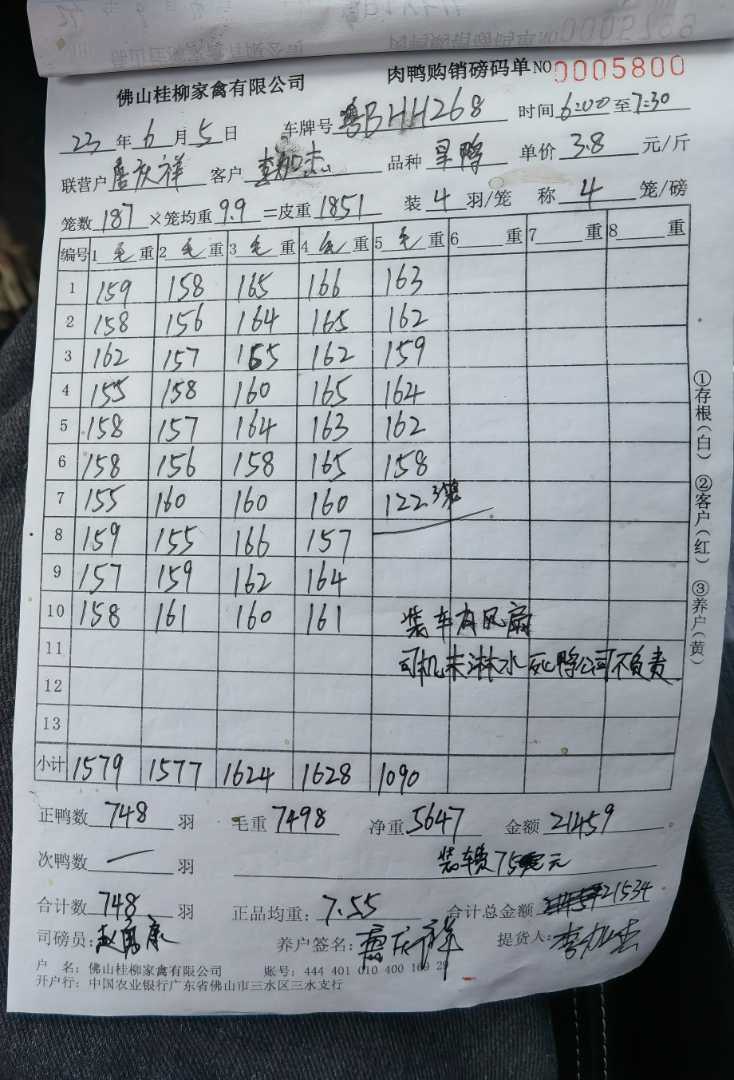 佛山桂柳家禽有限公司 肉鸭购销磅码单 NO 0005800
23 年 6 月 5 日 车牌号 粤BHH268 时间 6:00 至 7:30
联营户 詹庆祥 客户 李加杰 品种 旱鸭 单价 3.8 元/斤
笼数 187 ×笼均重 9.9 =皮重 1851 装 4 羽/笼 称 4 笼/磅
编号 1 毛 重 2 毛 重 3 毛 重 4 毛 重 5 毛 重 6 重 7 重 8 重
1 159 158 165 166 163
2 158 156 164 165 162
3 162 157 165 162 159
4 155 158 160 165 164
5 158 157 164 163 162
6 158 156 158 165 158
7 155 160 160 160 122 3笼
8 159 155 166 157
9 157 159 162 164
10 158 161 160 161 装车有风扇
11 司机未淋水死鸭公司不负责
12
13
小计 1579 1577 1624 1628 1090
正鸭数 748 羽 毛重 7498 净重 5647 金额 21459
次鸭数 — 羽 装车费75元
合计数 748 羽 正品均重: 7.55 合计总金额 21534
司磅员: 养户签名: 詹庆祥 提货人: 李加杰
户 名: 佛山桂柳家禽有限公司 账号: 444 401 010 400 169 29
开户行: 中国农业银行广东省佛山市三水区三水支行
①存根(白) ②客户(红) ③养户(黄)